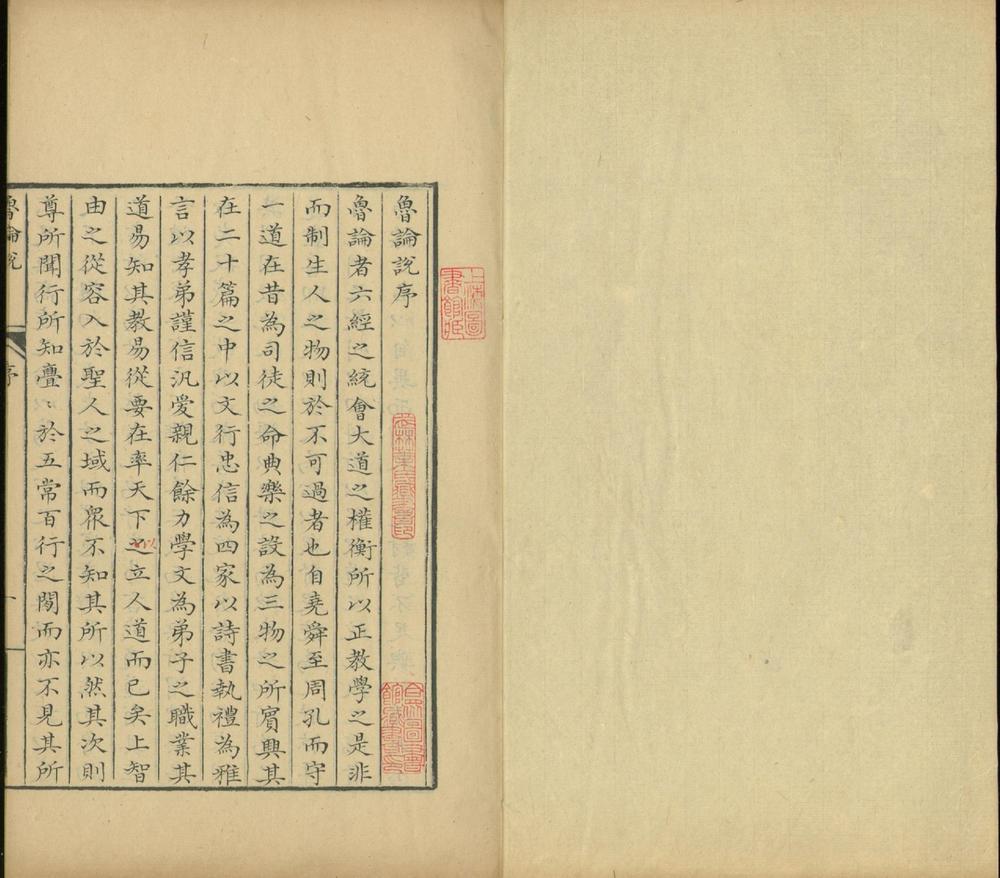 魯論說序
魯論者六經之統會大道之權衡所以正教學之是非
而制生人之物則於不可過者也自堯舜至周孔而守
一道在昔為司徒之命典樂之設為三物之所賓興其
在二十篇之中以文行忠信為四家以詩書執禮為雅
言以孝弟謹信汎愛親仁餘力學文為弟子之職業其
道易知其教易從要在率天下之以立人道而已矣上智
由之從容入於聖人之域而眾不知其所以然其次則
尊所聞行所知亹〻於五常百行之閑而亦不見其所
魯論說
序
一
上海圖書館藏
合眾圖書館藏書印